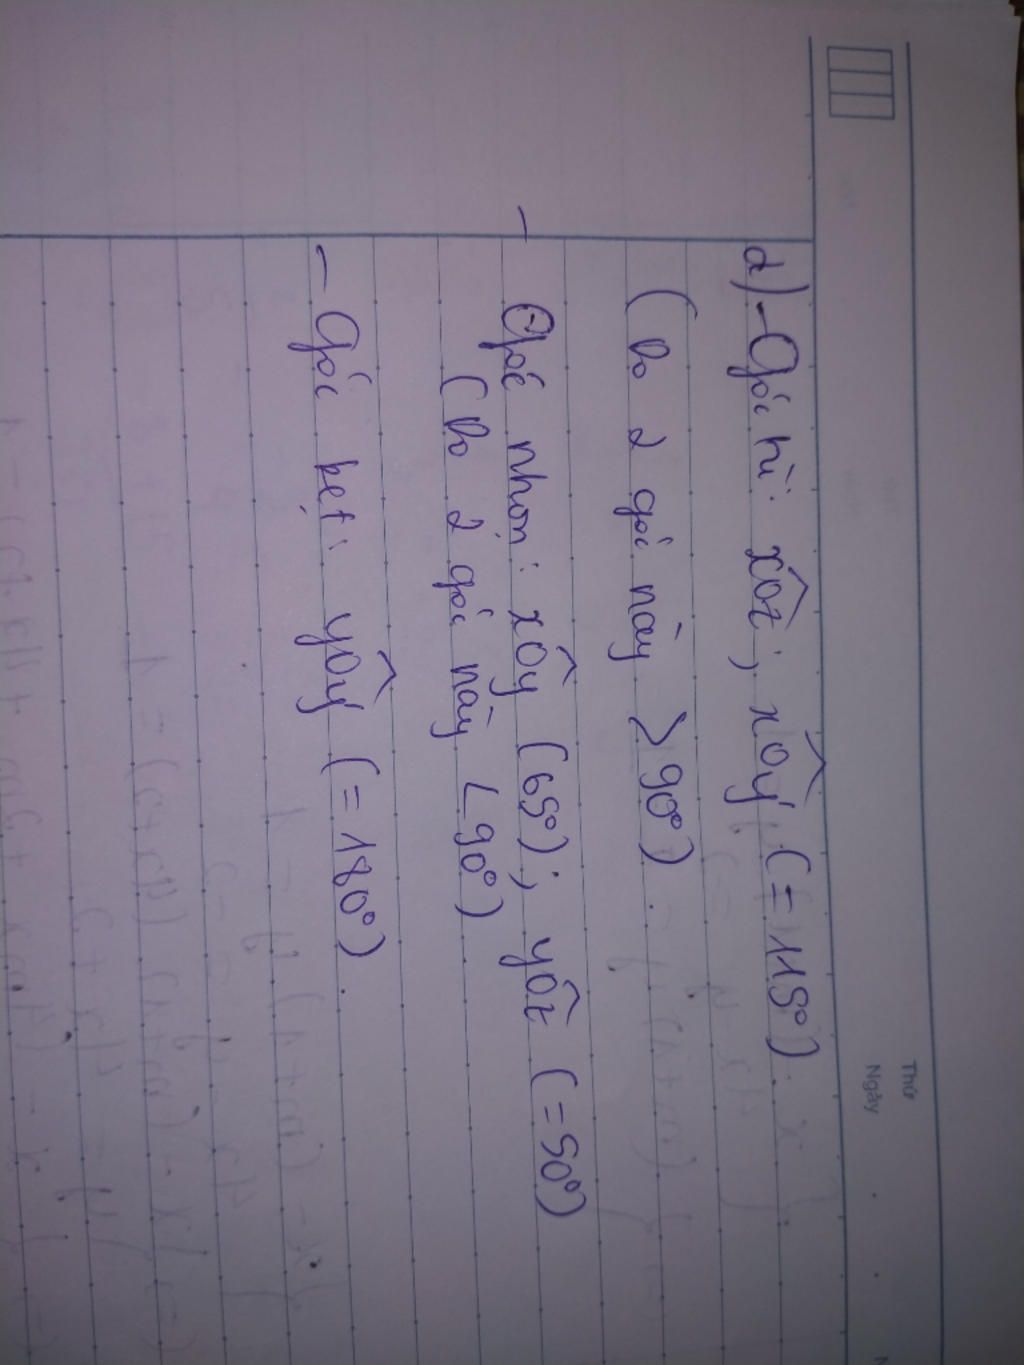 Thứ
Ngày
d) - Góc tù: xOz; xOy' (= 115°).
(Do 2 góc này > 90°).
- Góc nhọn: xOy (65°); yOz (= 50°)
(Do 2 góc này < 90°)
- Góc kẹt: yOy' (= 180°).